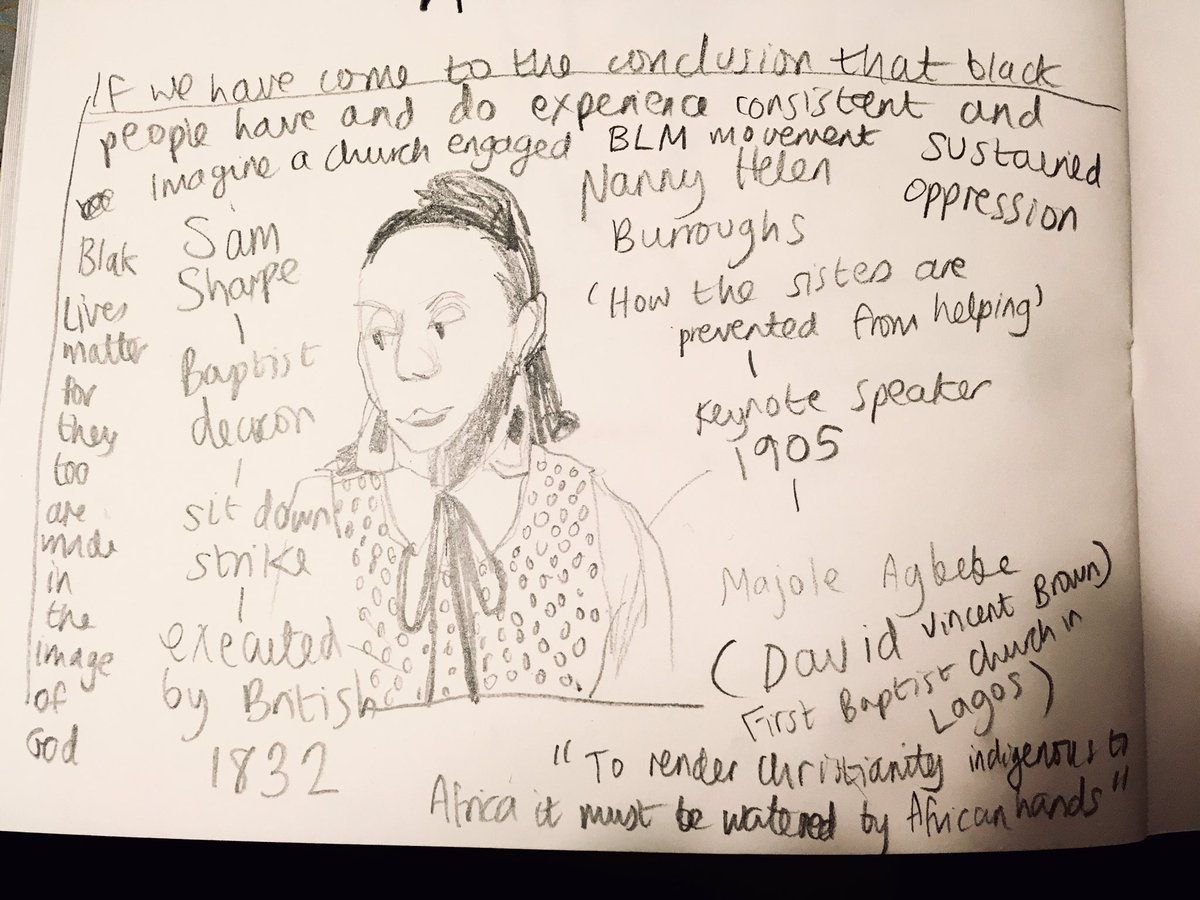 If we have come to the conclusion that black
people have and do experience consistent and
sustained
oppression
Imagine a church engaged BLM movement
Blak
Lives
matter
for
they
too
are
made
in
the
image
of
God
Sam
Sharpe
Baptist
deacon
sit down
strike
executed
by British
1832
Nanny Helen
Burroughs
'How the sisters are
prevented from helping'
Keynote speaker
1905
Majole Agbebe
(David Vincent Brown)
First Baptist church in
Lagos)
"To render Christianity indigenous to
Africa it must be watered by African hands"